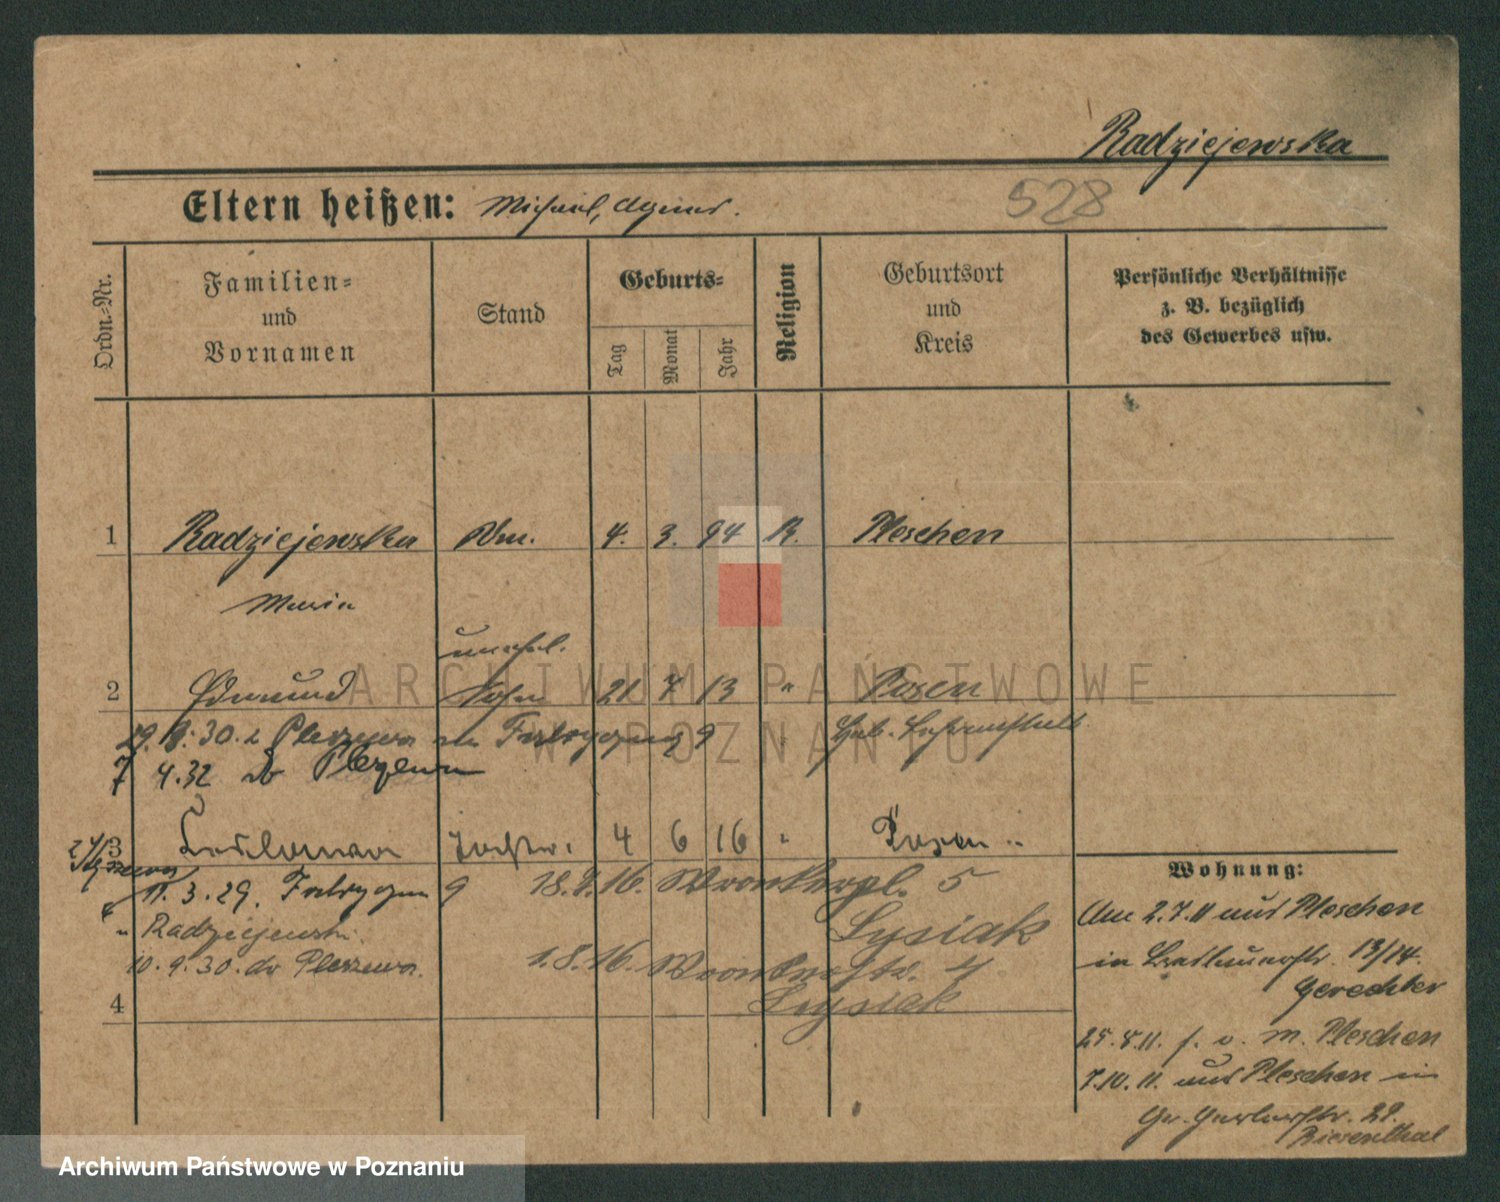 Radziejewska
528
Eltern heißen: Michael, Agnes.
Ordn.-Nr.
Familien-
und
Vornamen
Stand
Geburts-
Tag
Monat
Jahr
Religion
Geburtsort
und
Kreis
Persönliche Verhältnisse
z. B. bezüglich
des Gewerbes usw.
1 Radziejewska 4. 3. 94 K. Pleschen
Maria
unehel.
2 Edmund Sohn 21 7 13 " Posen
29. 8. 30. z Pleszewa 9 Heb. Lehranstalt
7 4.32 do Pleszewa
3 Tochter. 4 6 16 " Posen
11. 3. 29. 9 18. 7. 16. Wronkerpl. 5
" Radziejewski. Lysiak
10. 9. 30. do Pleszewa. 1. 8. 16. Wronkerstr. 4
4 Lysiak
Wohnung:
Am 2.7.11 aus Pleschen
in Breslauerstr. 13/14.
Gerechter
25.8.11. f. v. m. Pleschen
7.10.11. aus Pleschen in
Gr. Gerberstr. 29.
Riesenthal
ARCHIWUM PAŃSTWOWE
W POZNANIU
Archiwum Państwowe w Poznaniu